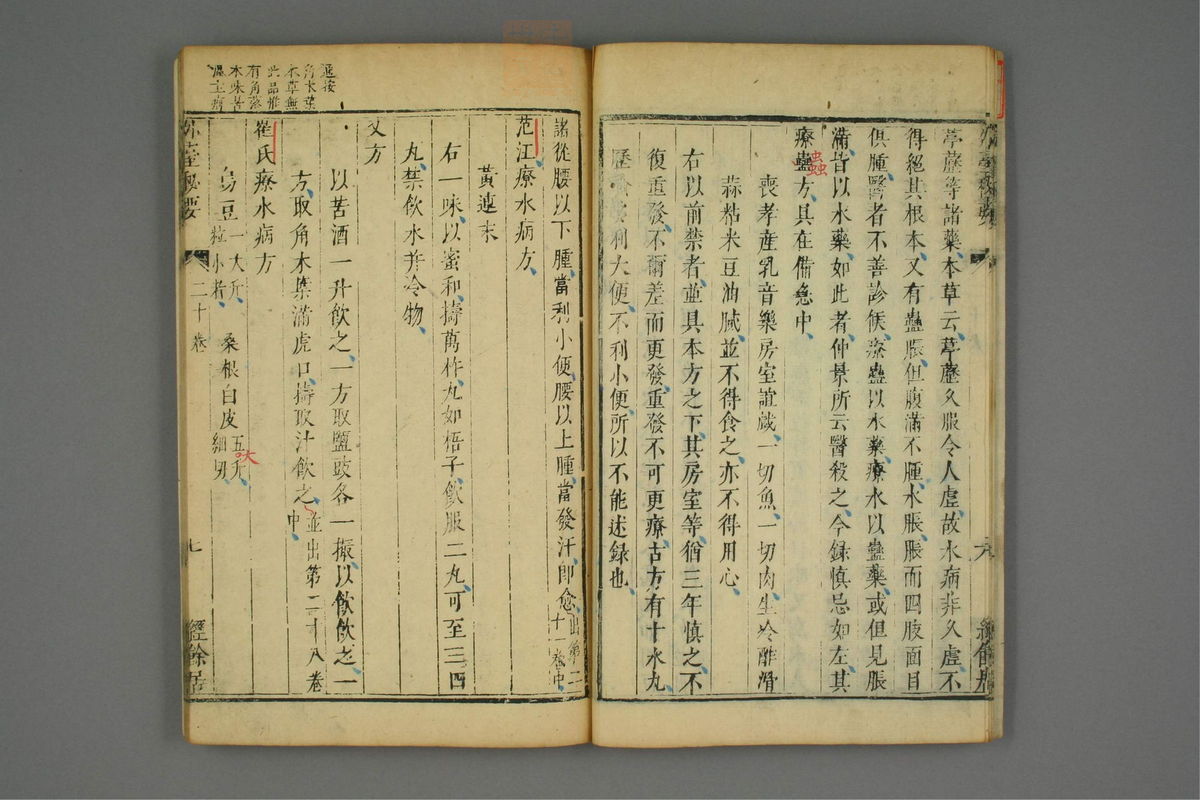 葶藶等諸藥、本草云、葶藶久服令人虛、故水病非久虛、不
得絕其根本、又有蠱脹、但腹滿不腫、水脹、脹而四肢面目
俱腫、醫者不善診候、療蠱以水藥、療水以蠱藥、或但見脹
滿、皆以水藥、如此者、仲景所云醫殺之、今錄慎忌如左、其
療蠱方、具在備急中、
蠱
喪孝產乳音樂房室諠戲、一切魚、一切肉、生冷酢滑
蒜粘米豆油膩、並不得食之、亦不得用心、
右以前禁者、並具本方之下、其房室等、猶三年慎之、不
復重發、不爾差而更發、重發不可更療、古方有十水丸、
歷驗多利大便、不利小便、所以不能述錄也、
六
經餘居
通按
角木葉
本草無
此品惟
有角蒿
木味苦
諸從腰以下腫、當利小便、腰以上腫、當發汗、即愈、出第二十一卷中、
范汪療水病方、
黃連末
右一味、以蜜和擣萬杵、丸如梧子、飲服二丸、可至三四
丸、禁飲水并冷物、
又方
以苦酒一升飲之、一方取鹽豉各一撮、以飲飲之、一
方、取角木葉滿虎口、擣取汁飲之、並出第二十八卷中、
崔氏療水病方
烏豆一大升、粒小者、 桑根白皮五升、細切、
大
外臺秘要
二十卷
七
經餘居